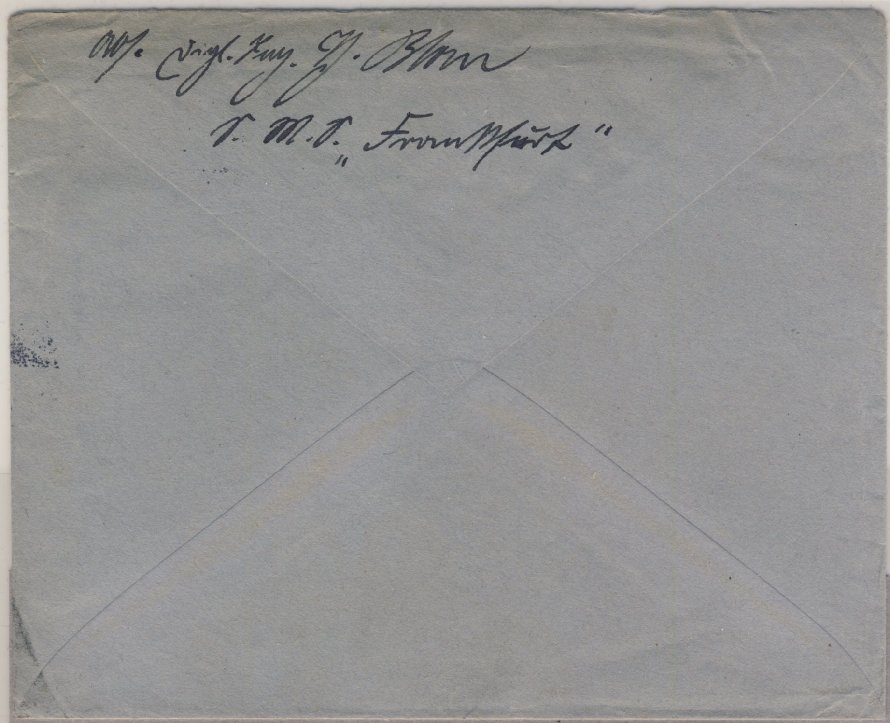 Abs. Dipl. Ing. H. Blom
S. M. S. „Frankfurt"